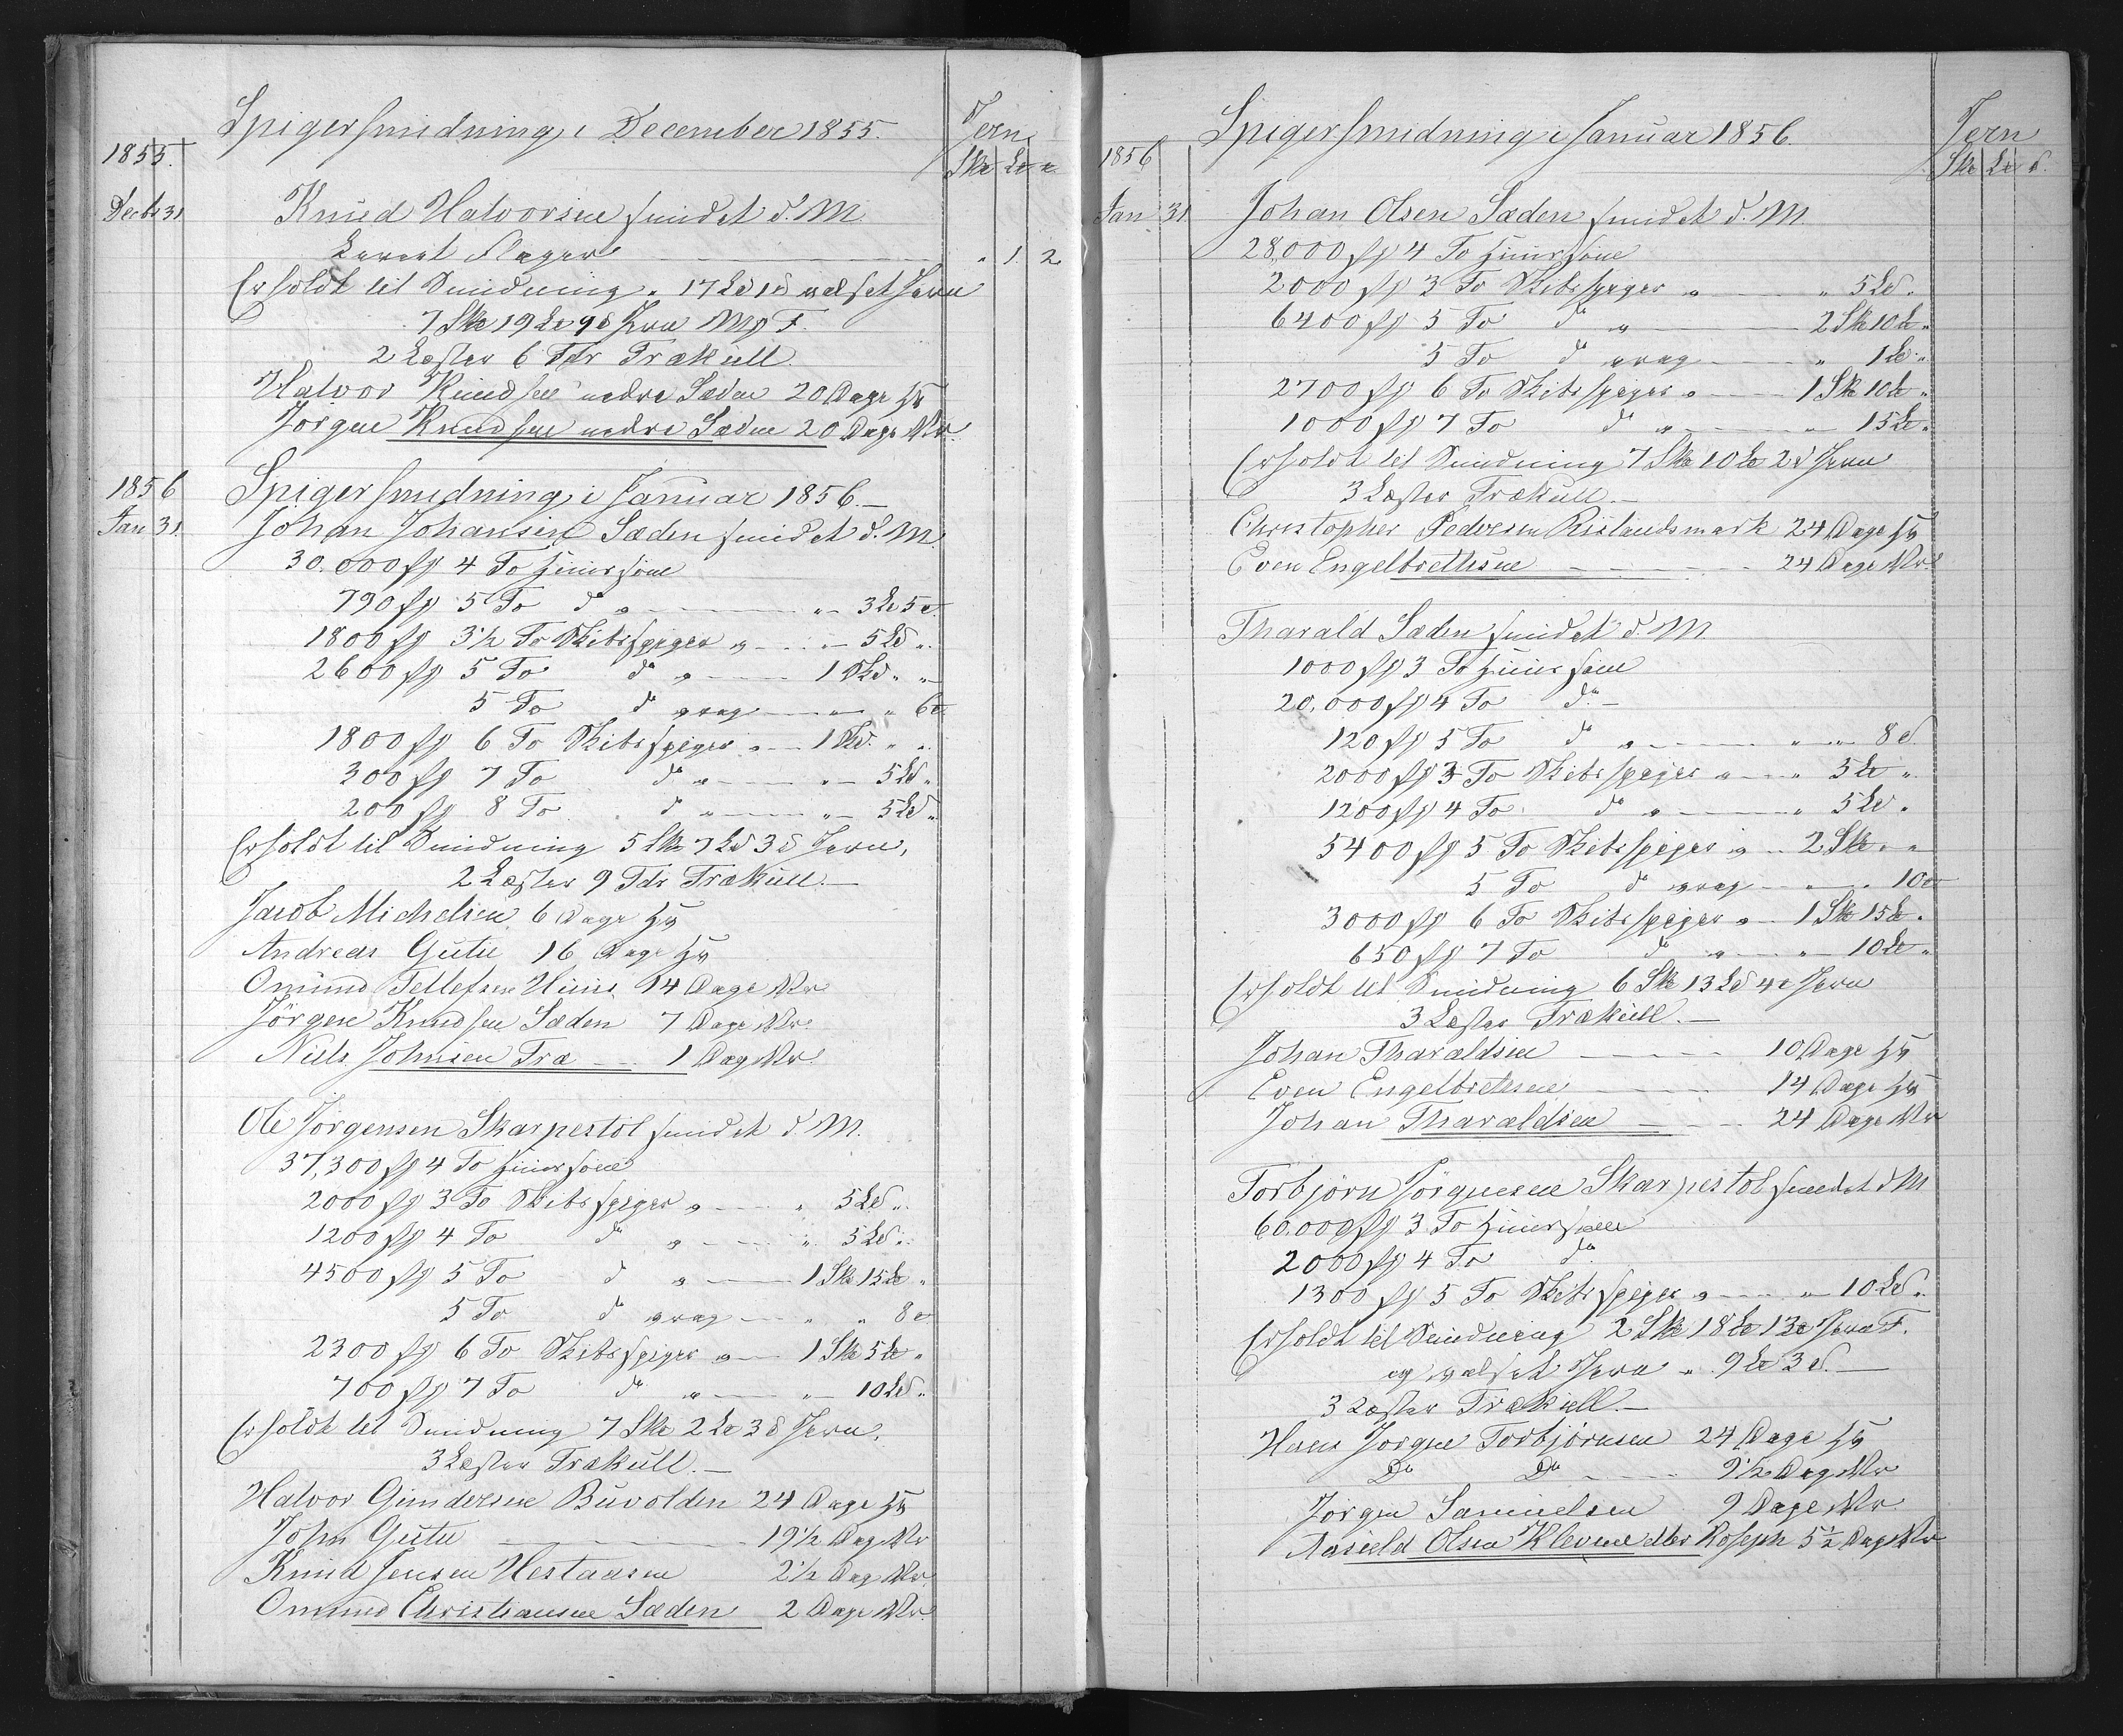 Spigersmidning i December 1855.
Jern
1855.
Sk℔ L℔ ℔
Decbr 31 Knud Halvorsen smidet d. M.
Levert Slager " 1 2
Erholdt til Smidning " 17 L℔ 1 ℔ valset Jern
7 Sk℔ 19 L℔ 9 ℔ Jern Mp F.
2 Lester 6 Tdr Trækull
Halvor Knudsen nedre Sæden 20 Dage
Jörgen Knudsen nedre Sæden 20 Dage
1856 Spigersmidning i Januar 1856.—
Jan 31. Johan Johansen Sæden smidet d. M.
30.000 4 To
790 5 To do " — " 3 L℔ 5 ℔
1800 3½ To Skibsspiger " — " 5 L℔ "
2600 5 To do " — 1 Sk℔ " "
5 To do vrag — " " 6 ℔
1800 6 To Skibsspiger " — 1 Sk℔ " "
300 7 To do " — " 5 L℔ "
200 8 To do " — " 5 L℔ "
Erholdt til Smidning 5 Sk℔ 7 L℔ 3 ℔ Jern,
2 Lester 9 Tdr Trækull.—
Jacob Michelsen 6 Dage
Andreas Gutu 16 Dage
Omund Tellefsen 14 Dage
Jörgen Knudsen Sæden 7 Dage
Niels Johnsen Træ — 1 Dag
Ole Jörgensen Skarpestöl smidet d. M.
37,300 4 To
2000 3 To Skibsspiger " — " 5 L℔ "
1200 4 To do " — " 5 L℔ "
4500 5 To do " — 1 Sk℔ 15 L℔ "
5 To do vrag — " " 8 ℔
2300 6 To Skibsspiger " — 1 Sk℔ 5 L℔ "
700 7 To do " — " 10 L℔ "
Erholdt til Smidning 7 Sk℔ 2 L℔ 3 ℔ Jern,
3 Lester Trækull.—
Halvor Gundersen Buvolden 24 Dage
John Gutu — 19½ Dag
Knud Jensen Hestaasen 2½ Dag
Omund Christiansen Sæden 2 Dage
Spigersmidning i Januar 1856.
Jern
1856
Sk℔ L℔ ℔
Jan 31 Johan Olsen Sæden smidet d. M.
28,000 4 To
2000 3 To Skibsspiger " — " 5 L℔ "
6400 5 To do " — 2 Sk℔ 10 L℔ "
5 To do vrag — " 1 L℔ "
2700 6 To Skibsspiger " — 1 Sk℔ 10 L℔ "
1000 7 To do " — " 15 L℔ "
Erholdt til Smidning 7 Sk℔ 10 L℔ 2 ℔ Jern
3 Lester Trækull.—
Christopher Pedersen Rislandsmark 24 Dage
Even Engelbrettesen — 24 Dage
Tharald Sæden smidet d. M.
1000 3 To
20,000 4 To do —
120 5 To do " — " " 8 ℔
2000 3 To Skibsspiger " — " 5 L℔ "
1200 4 To do " — " 5 L℔ "
5400 5 To Skibsspiger " — 2 Sk℔ " "
5 To do vrag — " " 10 ℔
3000 6 To Skibsspiger " — 1 Sk℔ 15 L℔ "
650 7 To do " — " 10 L℔ "
Erholdt til Smidning 6 Sk℔ 13 L℔ 4 ℔ Jern
3 Lester Trækull.—
Johan Tharaldsen — 10 Dage
Even Engelbretesen — 14 Dage
Johan Tharaldsen — 24 Dage
Torbjörn Jörgensen Skarpestöl smidet d M
60,000 3 To
2000 4 To do
1300 5 To Skibsspiger " — " 10 L℔ "
Erholdt til Smidning 2 Sk℔ 18 L℔ 13 ℔ Jern F.
og valset Jern " 9 L℔ 3 ℔.—
3 Lester Trækull.—
Hans Jörgen Torbjörnsen 24 Dage
Do Do — 9½ Dag
Jörgen Samuelsen 9 Dage
Olsen Klevene 5½ Dag